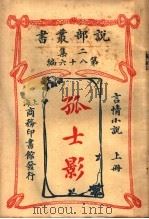 說部叢書
二集
第八十六編
言情小說 上冊
孤士影
上海
商務印書館發行